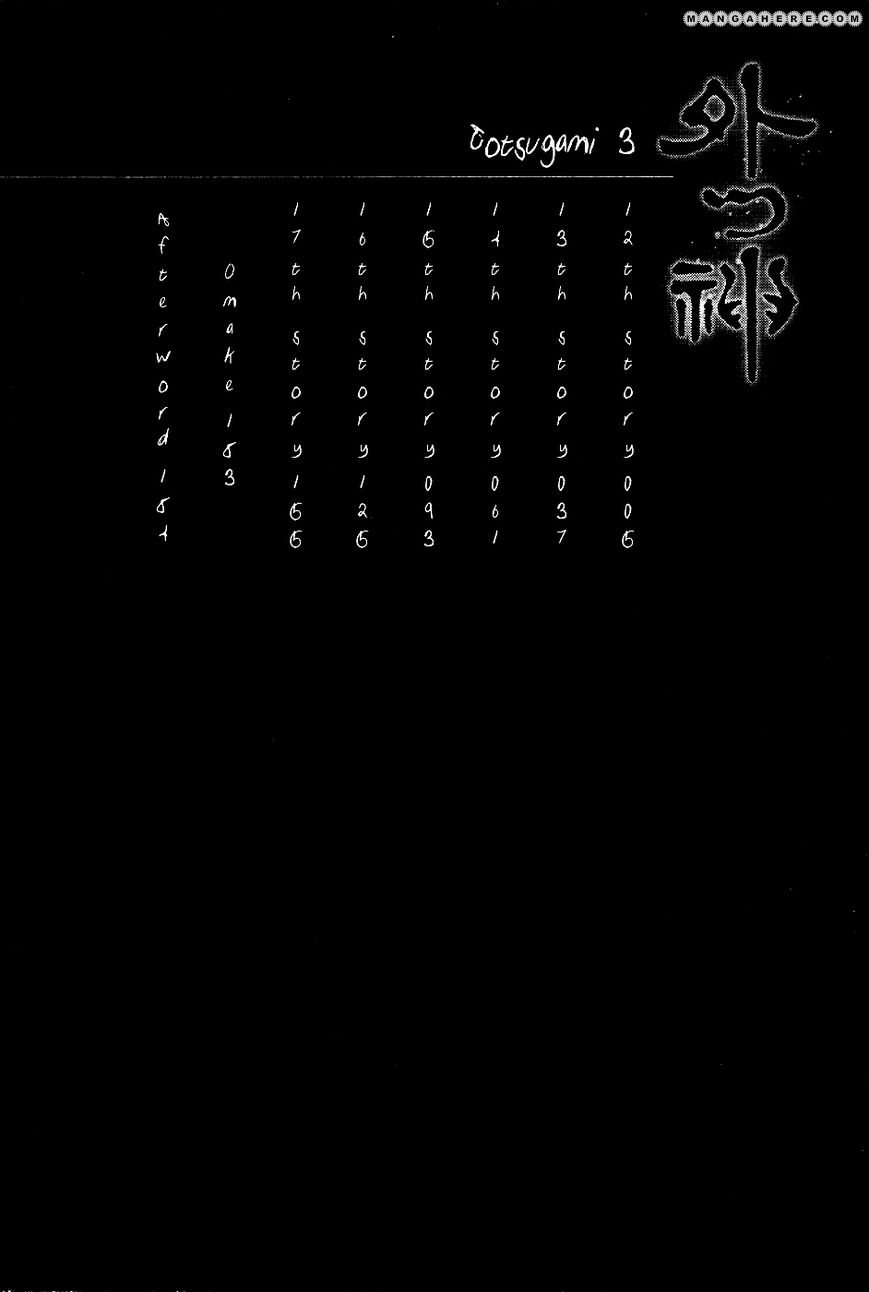 MANGAHERE.COM
外つ神
Totsugami 3
12th story 005
13th story 037
14th story 061
15th story 093
16th story 125
17th story 155
Omake 183
Afterword 184